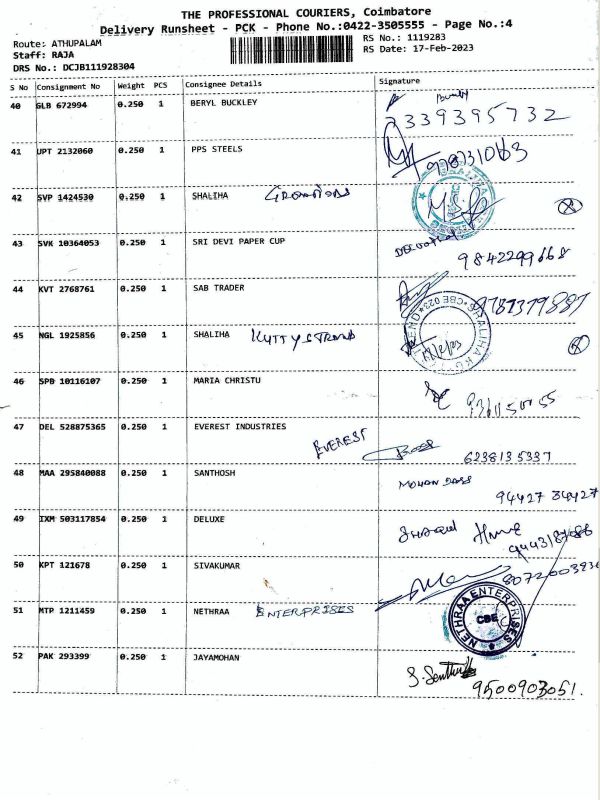 THE PROFESSIONAL COURIERS, Coimbatore
Delivery Runsheet - PCK - Phone No.:0422-3505555 - Page No.:4
Route: ATHUPALAM
RS No.: 1119283
Staff: RAJA
RS Date: 17-Feb-2023
DRS No.: DCJB111928304
S No Consignment No Weight PCS Consignee Details Signature
40 GLB 672994 0.250 1 BERYL BUCKLEY
41 UPT 2132060 0.250 1 PPS STEELS
42 SVP 1424530 0.250 1 SHALIHA
43 SVK 10364053 0.250 1 SRI DEVI PAPER CUP
9842299668
44 KVT 2768761 0.250 1 SAB TRADER
9787379887
45 NGL 1925856 0.250 1 SHALIHA
46 SPB 10116107 0.250 1 MARIA CHRISTU
47 DEL 528875365 0.250 1 EVEREST INDUSTRIES
EVEREST Boss 6238135337
48 MAA 295840088 0.250 1 SANTHOSH
MOHAN DASS
94427 34427
49 IXM 503117854 0.250 1 DELUXE
50 KPT 121678 0.250 1 SIVAKUMAR
51 MTP 1211459 0.250 1 NETHRAA ENTERPRISES
NETHRAA ENTERPRISES
CBE
52 PAK 293399 0.250 1 JAYAMOHAN
9500903051.